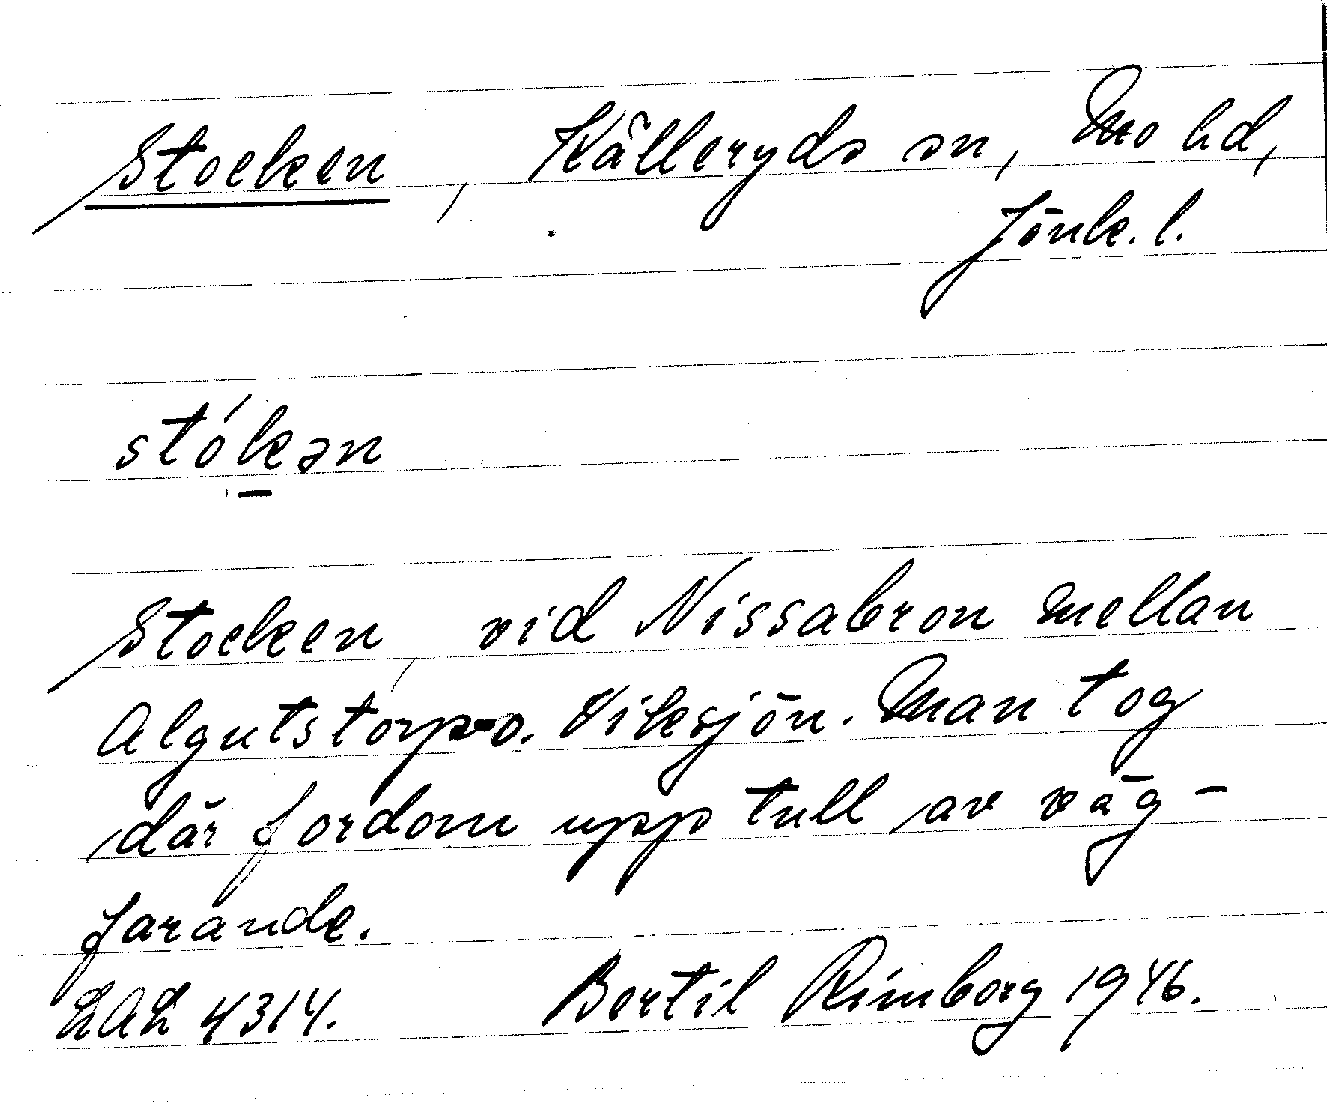 Stocken, Kålleryds sn, Mo hd,
Jönk. l.
stók̠ən
Stocken, vid Nissabron mellan
Algutstorp o. Viksjön. Man tog
där fordom upp tull av väg-
farande.
LAL 4314. Bertil Rimborg 1946.